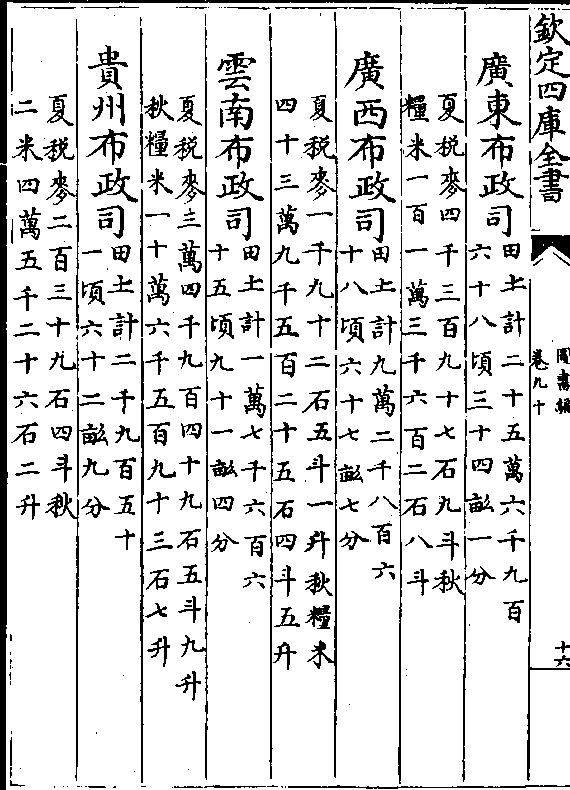 欽定四庫全書
圖書編
卷九十
十六
廣東布政司
田土計二十五萬六千九百
六十八頃三十四畝一分
夏税麥四千三百九十七石九斗秋
糧米一百一萬三千六百二石八斗
廣西布政司
田土計九萬二千八百六
十八頃六十七畝七分
夏税麥一千九十二石五斗一升秋糧米
四十三萬九千五百二十五石四斗五升
雲南布政司
田土計一萬七千六百六
十五頃九十一畝四分
夏税麥三萬四千九百四十九石五斗九升
秋糧米一十萬六千五百九十三石七升
貴州布政司
田土計二千九百五十
一頃六十二畝九分
夏税麥二百三十九石四斗秋
二米四萬五千二十六石二升